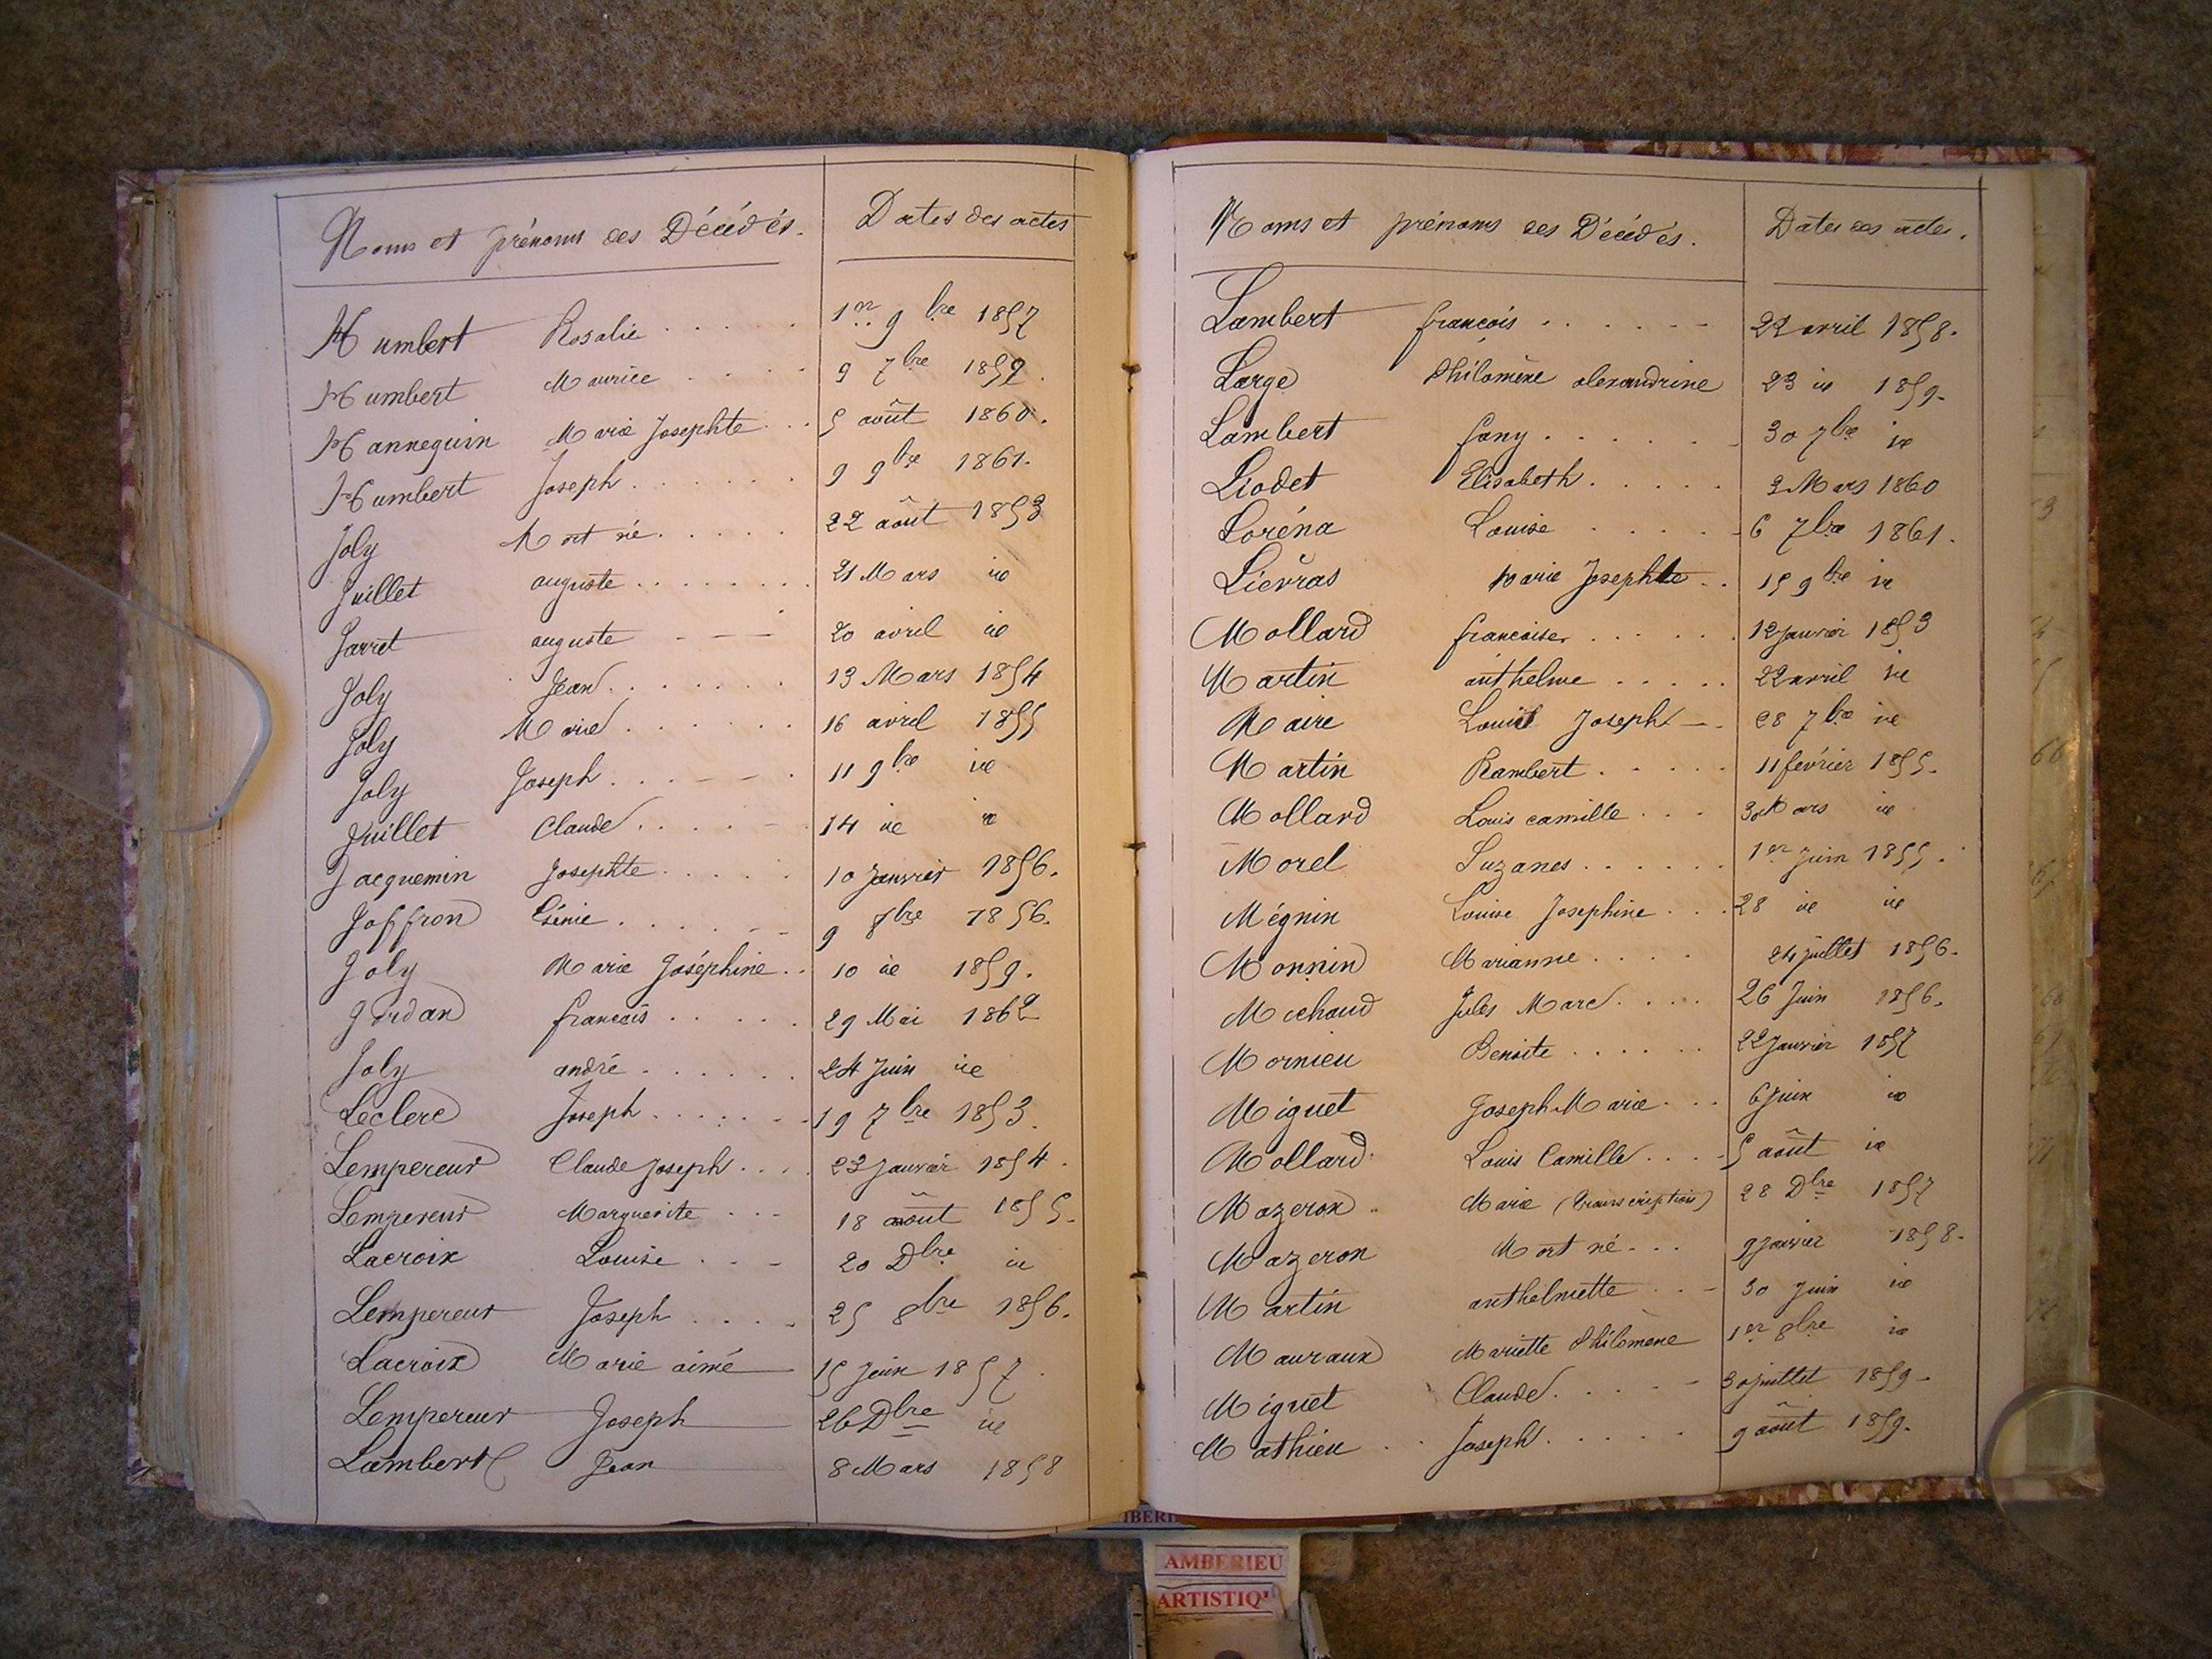 Noms et prénoms des Décédés. Dates des actes
Humbert Rosalie 1er 9bre 1857
Humbert Maurice 9 7bre 1859.
Hannequin Marie Josephte 5 août 1860.
Humbert Joseph 9 9bre 1861.
Joly Mort né 22 août 1853
Juillet auguste 21 Mars id
Jarret auguste 20 avril id
Joly Jean 13 Mars 1854
Joly Marie 16 avril 1855
Joly Joseph 11 9bre id
Juillet Claude 14 id id
Jacquemin Josephte 10 Janvier 1856.
Joffron Génie 9 8bre 1856.
Joly Marie Joséphine 10 id 1859.
Jordan francois 29 Mai 1862
Joly andré 24 Juin id
Leclerc Joseph 19 7bre 1853.
Lempereur Claude Joseph 23 Janvier 1854.
Lempereur Marguerite 18 août 1855.
Lacroix Louise 20 Dbre id
Lempereur Joseph 25 8bre 1856.
Lacroix Marie aimé 15 Juin 1857.
Lempereur Joseph 26 Dbre id
Lambert Jean 8 Mars 1858
Noms et prénoms des Décédés. Dates des actes.
Lambert françois 22 avril 1858.
Large Philomène alexandrine 23 id 1859.
Lambert fany 30 7bre id
Liodet Elisabeth 3 Mars 1860
Loréna Louise 6 7bre 1861.
Lievras Marie Josephte 15 9bre id
Mollard francoise 12 janvier 1853
Martin anthelme 22 avril id
Maire Louis Joseph 28 7bre id
Martin Rambert 11 février 1855.
Mollard Louis camille 30 Mars id
Morel Suzanes 1er Juin 1855.
Mégnin Louise Josephine 28 id id
Monnin Marianne 24 juillet 1856.
Michaud Jules Marc 26 Juin 1856.
Mornieu Benoite 22 Janvier 1857
Miguet Joseph Marie 6 Juin id
Mollard Louis Camille 5 août id
Mazeron Marie (transcription) 28 Dbre 1857
Mazeron Mort né 9 janvier 1858.
Martin anthelmette 30 Juin id
Mauraux Mariette Philomène 1er 8bre id
Miguet Claude 30 juillet 1859.
Mathieu Joseph 9 août 1859.
AMBERIEU
ARTISTIQ